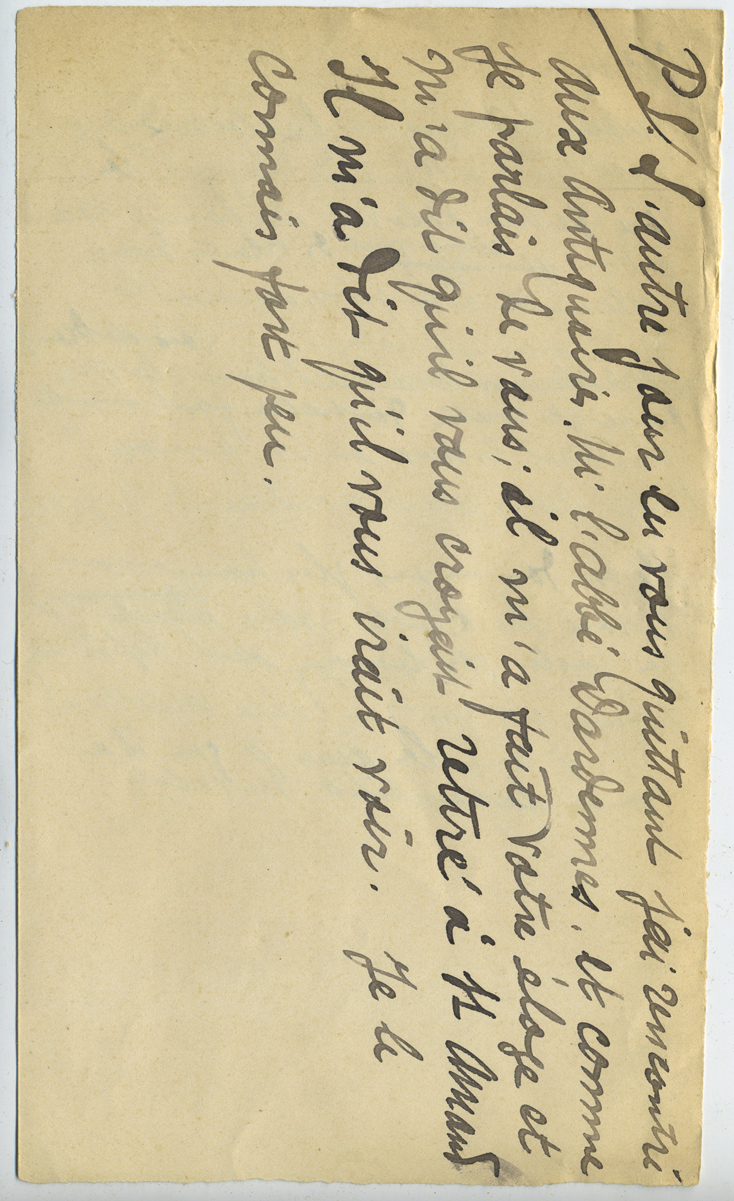 P.S. L'autre jour en vous quittant j'ai rencontré
aux Antiquaires. Mr l'abbé Dardennes, et comme
Je parlais de vous, il m'a fait votre éloge et
m'a dit qu'il vous croyait retiré à St Amand
Il m'a dit qu'il vous irait voir. Je le
connais fort peu.